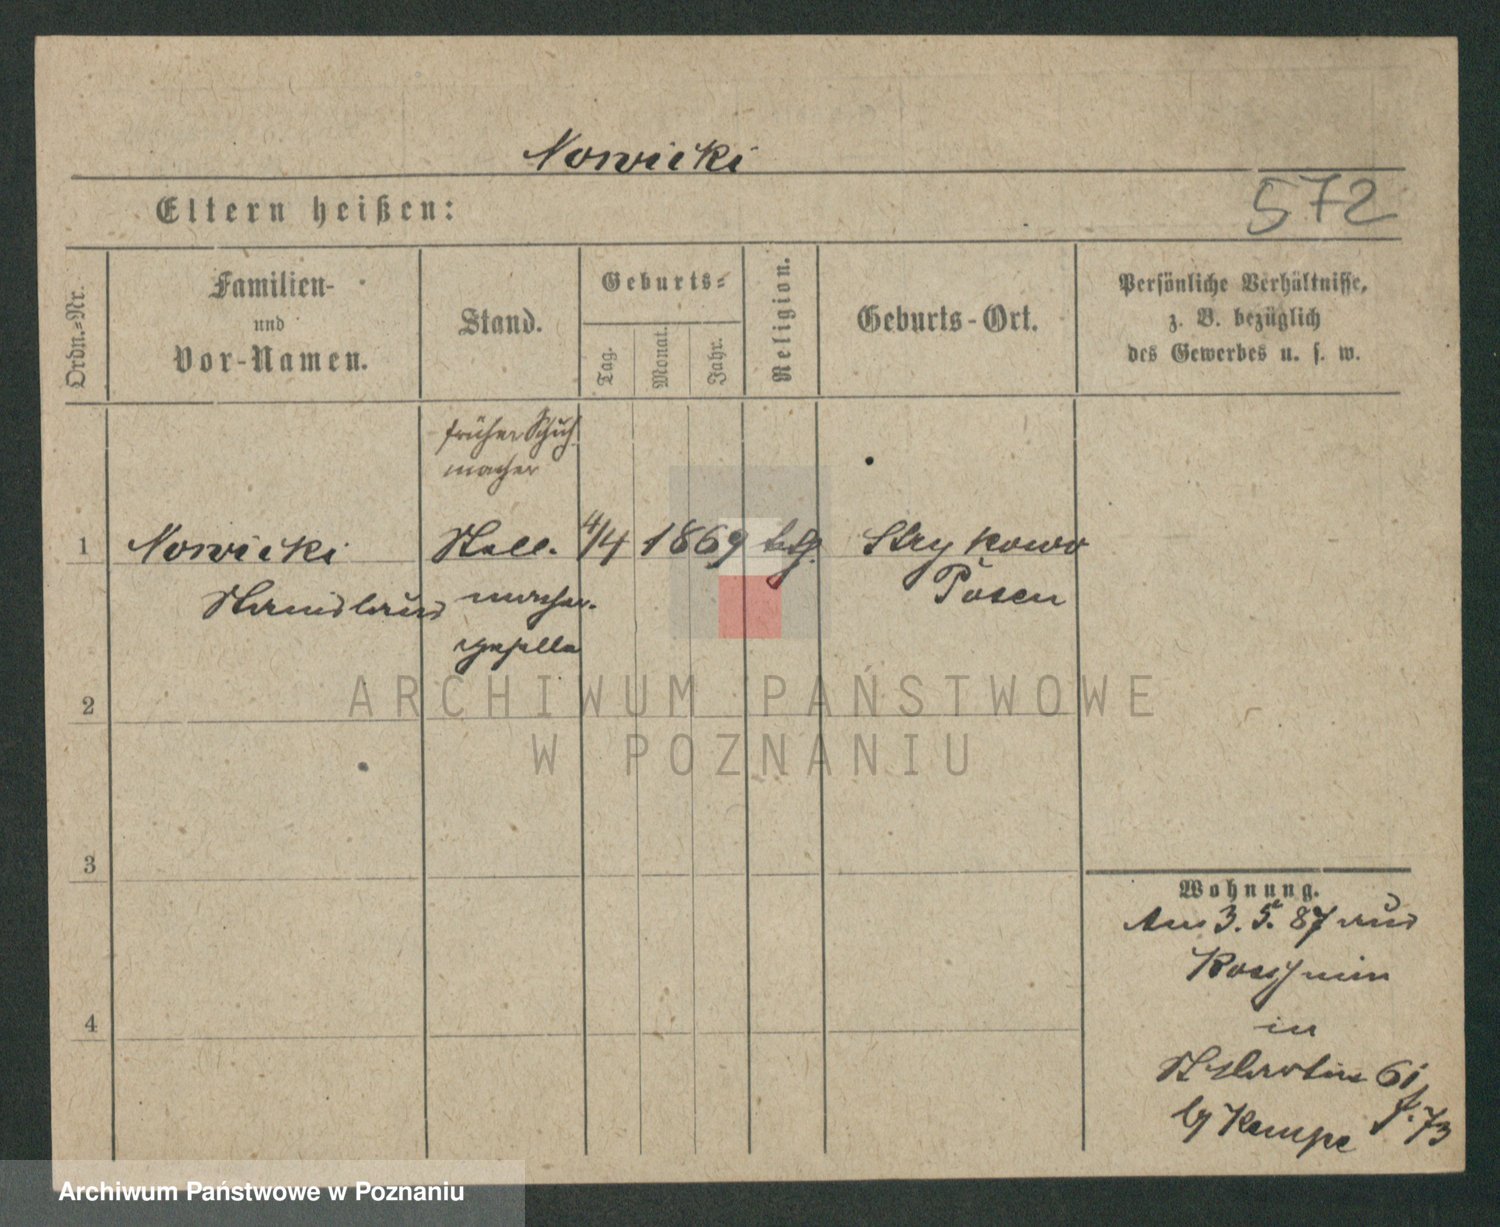 Nowicki
Eltern heißen:
572
Ordn.=Nr.
Familien-
und
Vor-Namen.
Stand.
Geburts=
Tag.
Monat.
Jahr.
Religion.
Geburts-Ort.
Persönliche Verhältnisse,
z. B. bezüglich
des Gewerbes u. s. w.
früher Schuh
macher
1 Nowicki Stell. 4/4 1869 ktg. Strykowo
Stanislaus macher. Posen
geselle
2
3
4
Wohnung.
Am 3. 5. 87 aus
in
St Martin 61
b/ Kempe f. 73
ARCHIWUM PAŃSTWOWE
W POZNANIU
Archiwum Państwowe w Poznaniu